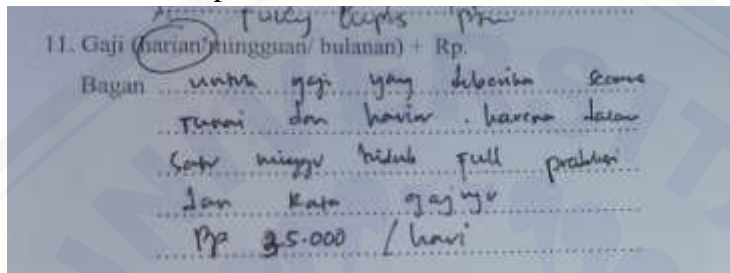 11. Gaji (harian/mingguan/ bulanan) + Rp.
Bagan untuk gaji yang diberikan secara
Tunai dan harian . karena dalam
Satu minggu tidak full produksi
dan Rata gajinya
Rp 35.000 / hari